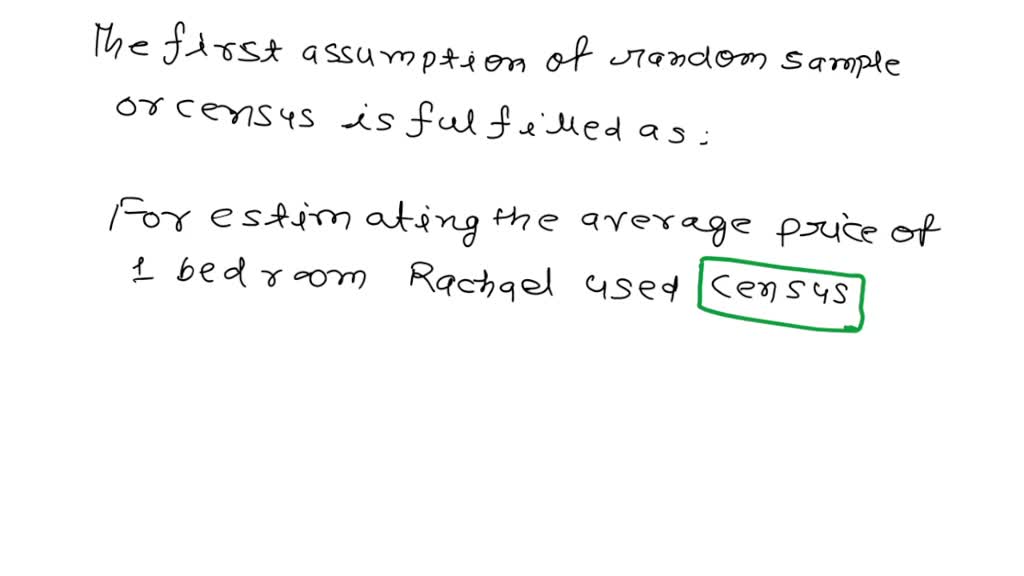 The first assumption of random sample
or census is fulfilled as:
For estimating the average price of
1 bedroom Rachael used census